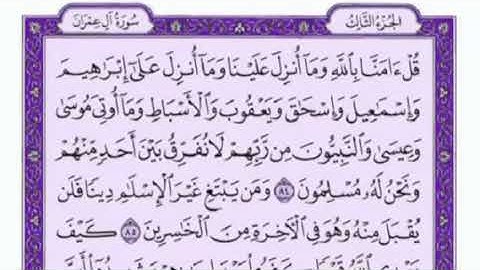 الجزء الثالث
سورة آل عمران
قُلْ ءَامَنَّا بِاللَّهِ وَمَا أُنزِلَ عَلَيْنَا وَمَا أُنزِلَ عَلَىٰ إِبْرَاهِيمَ
وَإِسْمَاعِيلَ وَإِسْحَاقَ وَيَعْقُوبَ وَالْأَسْبَاطِ وَمَا أُوتِيَ مُوسَىٰ
وَعِيسَىٰ وَالنَّبِيُّونَ مِن رَّبِّهِمْ لَا نُفَرِّقُ بَيْنَ أَحَدٍ مِّنْهُمْ
وَنَحْنُ لَهُ مُسْلِمُونَ ٨٤ وَمَن يَبْتَغِ غَيْرَ الْإِسْلَامِ دِينًا فَلَن
يُقْبَلَ مِنْهُ وَهُوَ فِي الْآخِرَةِ مِنَ الْخَاسِرِينَ ٨٥ كَيْفَ